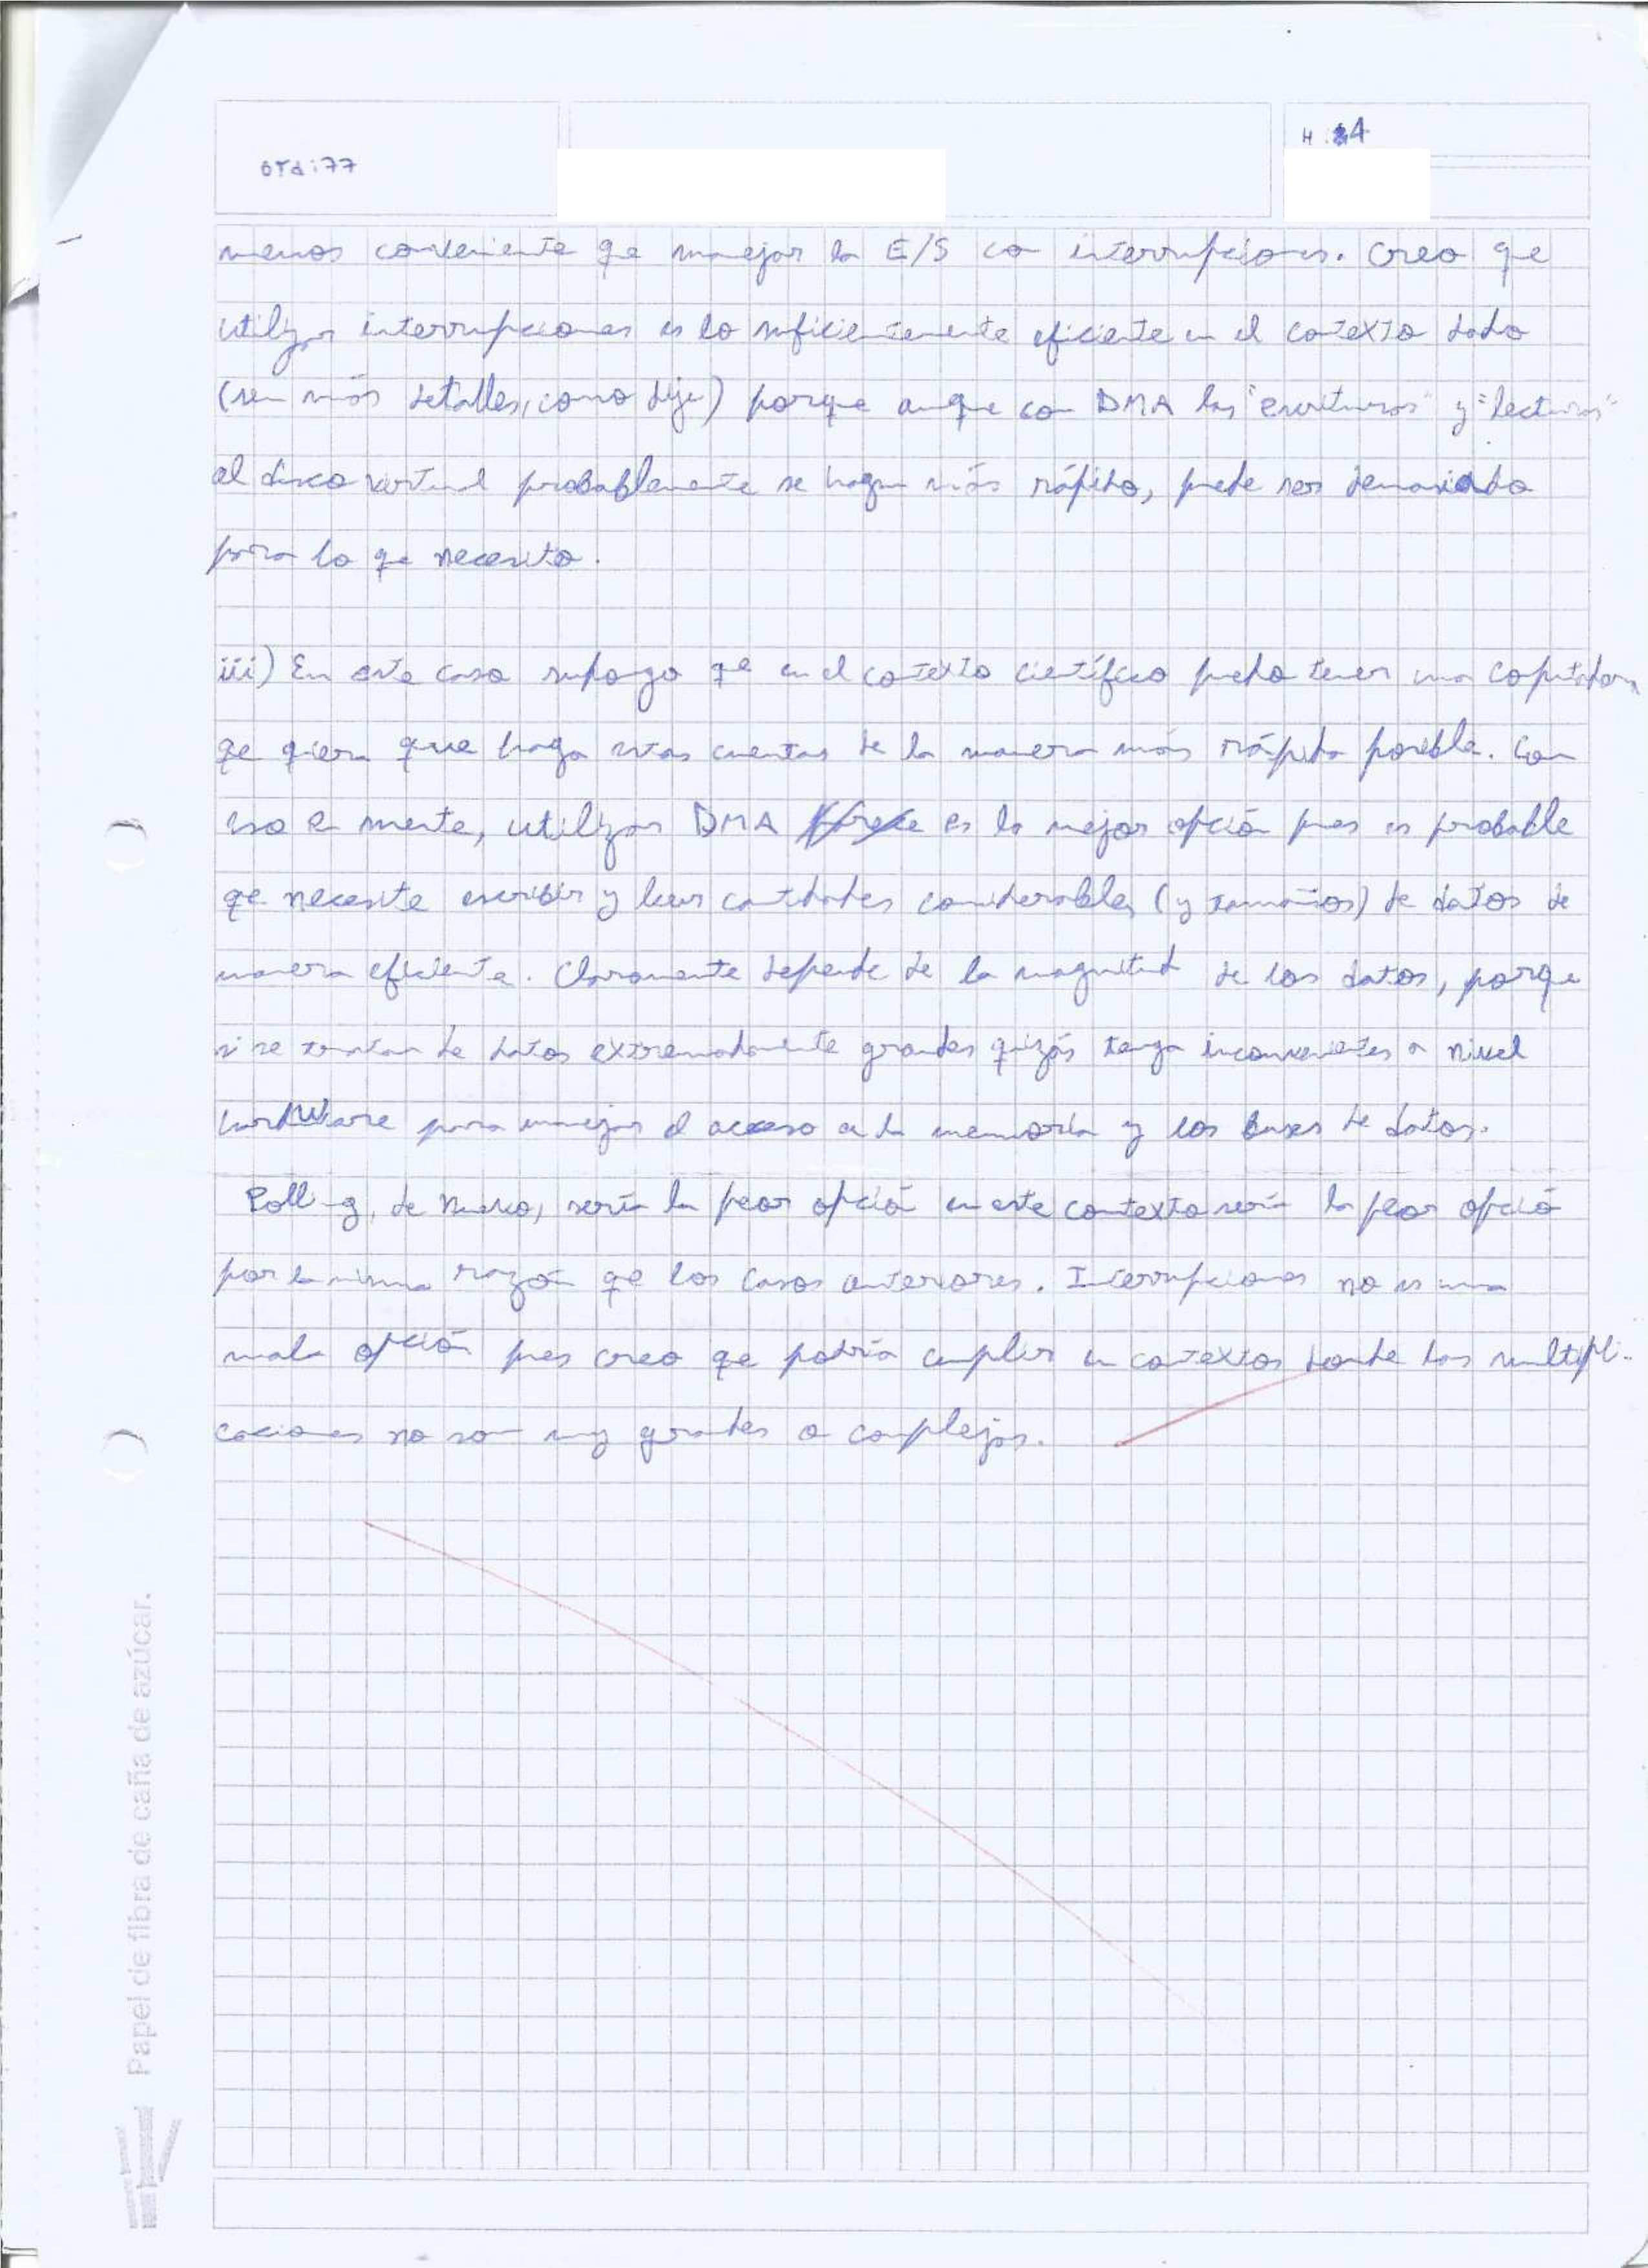 Ord:77
H:4
menos conveniente qe manejar la E/S con interrupciones. Creo que
utilizar interrupciones es lo suficientemente eficiente en el contexto dado
(sin más detalles, como dije) porque aunque con DMA las "escrituras" y "lecturas"
al disco virtual probablemente se hagan más rápido, puede ser demasiado
para lo qe necesito.
iii) En este caso supongo qe en el contexto científico puedo tener una computadora
qe quiera que haga estas cuentas de la manera más rápida posible. Con
eso en mente, utilizar DMA es la mejor opción pues es probable
qe necesite escribir y leer cantidades considerables (y tamaños) de datos de
manera eficiente. Claramente depende de la magnitud de los datos, porque
si se tratan de datos extremadamente grandes quizás tenga inconvenientes a nivel
hardware para manejar el acceso a la memoria y los buses de datos.
Polling, de nuevo, sería la peor opción en este contexto sería la peor opción
por la misma razón qe los casos anteriores. Interrupciones no es una
mala opción pues creo qe podría cumplir en contextos donde las multipli-
caciones no son muy grandes o complejas.
Papel de fibra de caña de azúcar.